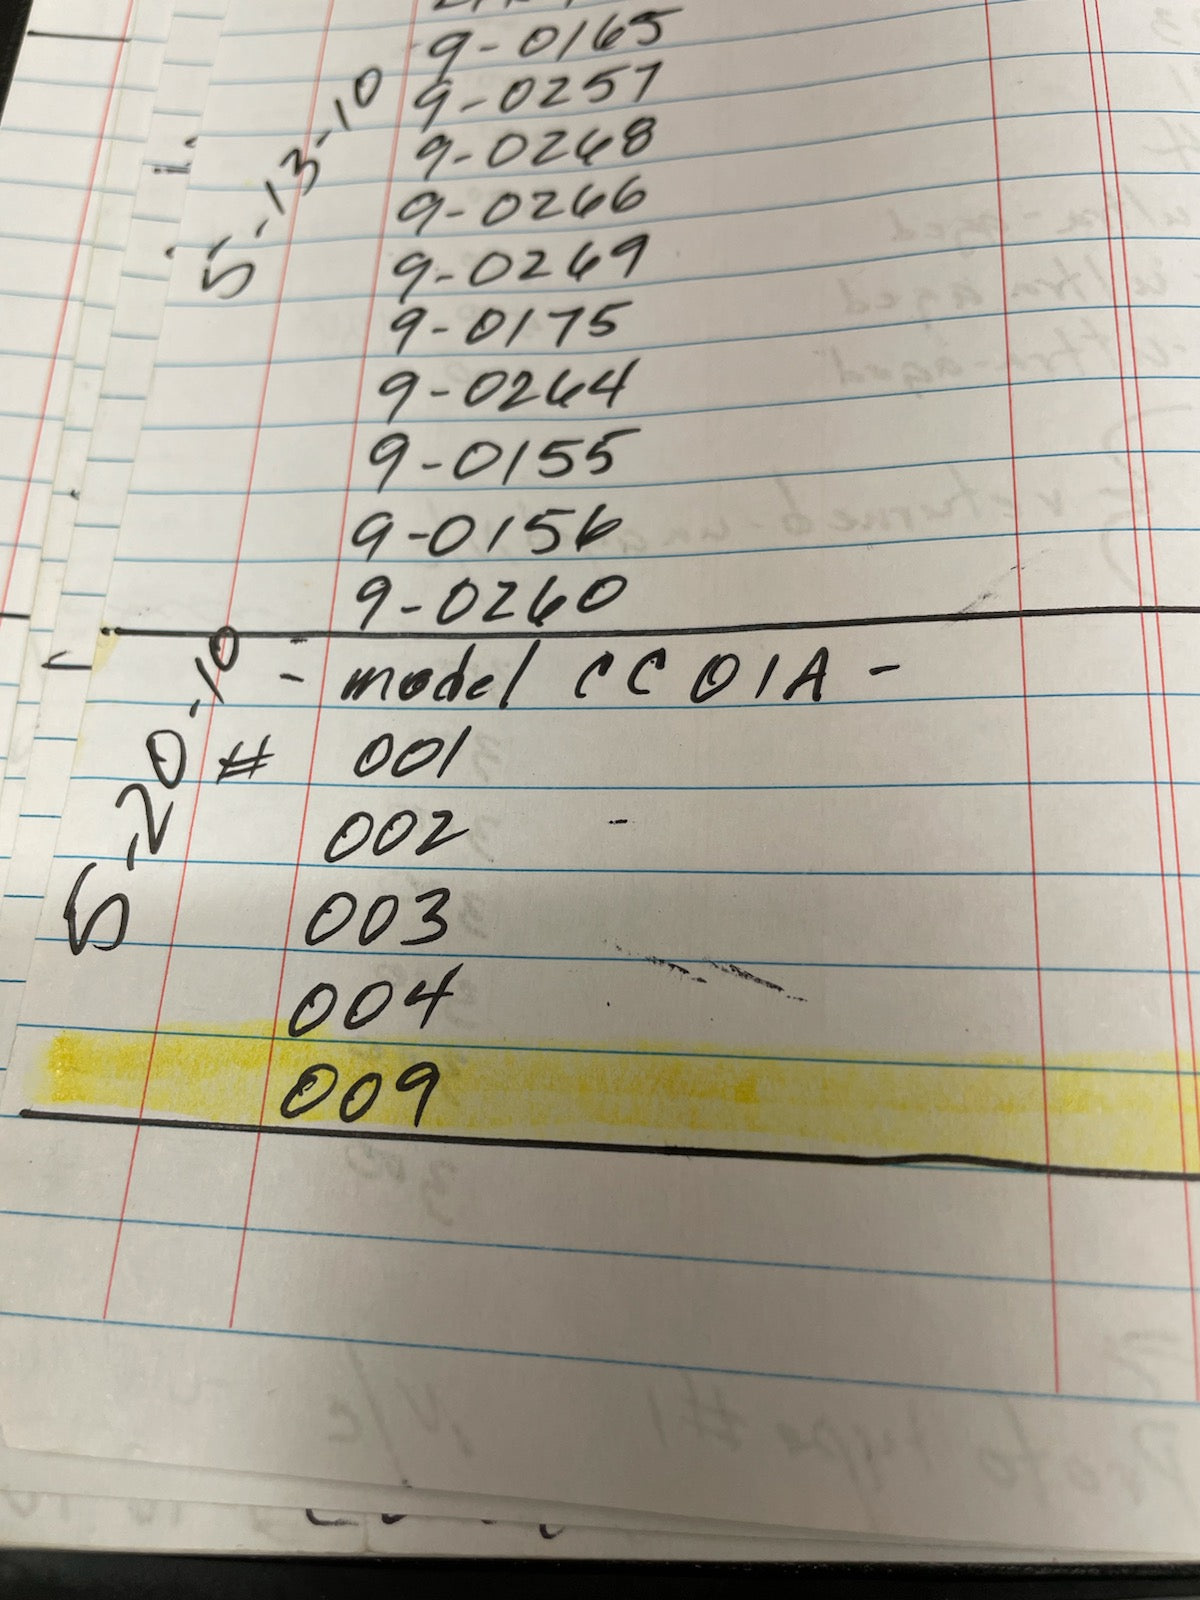 9-0165
5-13-10
9-0257
9-0268
9-0266
9-0269
9-0175
9-0264
9-0155
9-0156
9-0260
- model CC01A -
5-20-10
# 001
002
003
004
009